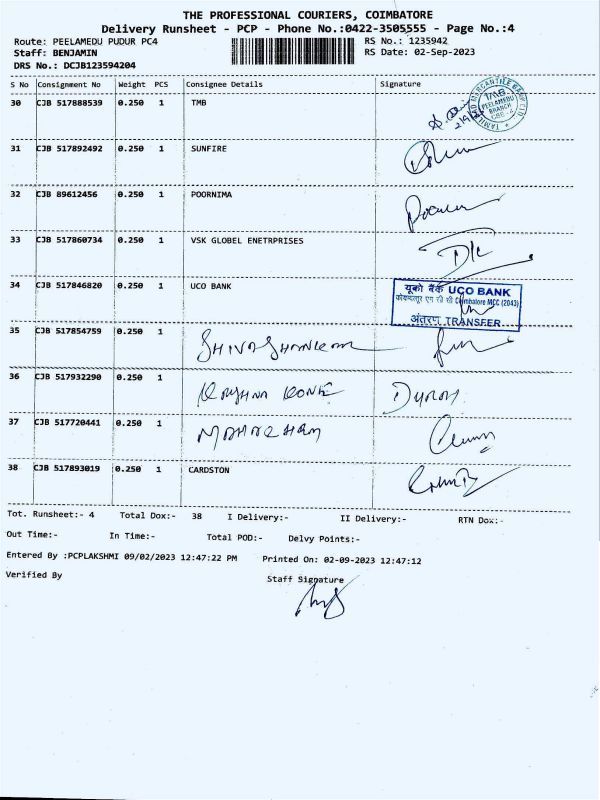 THE PROFESSIONAL COURIERS, COIMBATORE
Delivery Runsheet - PCP - Phone No.:0422-3505555 - Page No.:4
Route: PEELAMEDU PUDUR PC4 RS No.: 1235942
Staff: BENJAMIN RS Date: 02-Sep-2023
DRS No.: DCJB123594204
S No Consignment No Weight PCS Consignee Details Signature
30 CJB 517888539 0.250 1 TMB
TAMILNAD MERCANTILE BANK LTD. TMB PEELAMEDU BRANCH CBE-4
31 CJB 517892492 0.250 1 SUNFIRE
32 CJB 89612456 0.250 1 POORNIMA
33 CJB 517860734 0.250 1 VSK GLOBEL ENETRPRISES
34 CJB 517846820 0.250 1 UCO BANK
यूको बैंक UCO BANK
Coimbatore MCC (2043)
अंतरण TRANSFER
35 CJB 517854759 0.250 1
36 CJB 517932290 0.250 1
37 CJB 517720441 0.250 1
38 CJB 517893019 0.250 1 CARDSTON
Tot. Runsheet:- 4 Total Dox:- 38 I Delivery:- II Delivery:- RTN Dox:-
Out Time:- In Time:- Total POD:- Delvy Points:-
Entered By :PCPLAKSHMI 09/02/2023 12:47:22 PM Printed On: 02-09-2023 12:47:12
Verified By Staff Signature